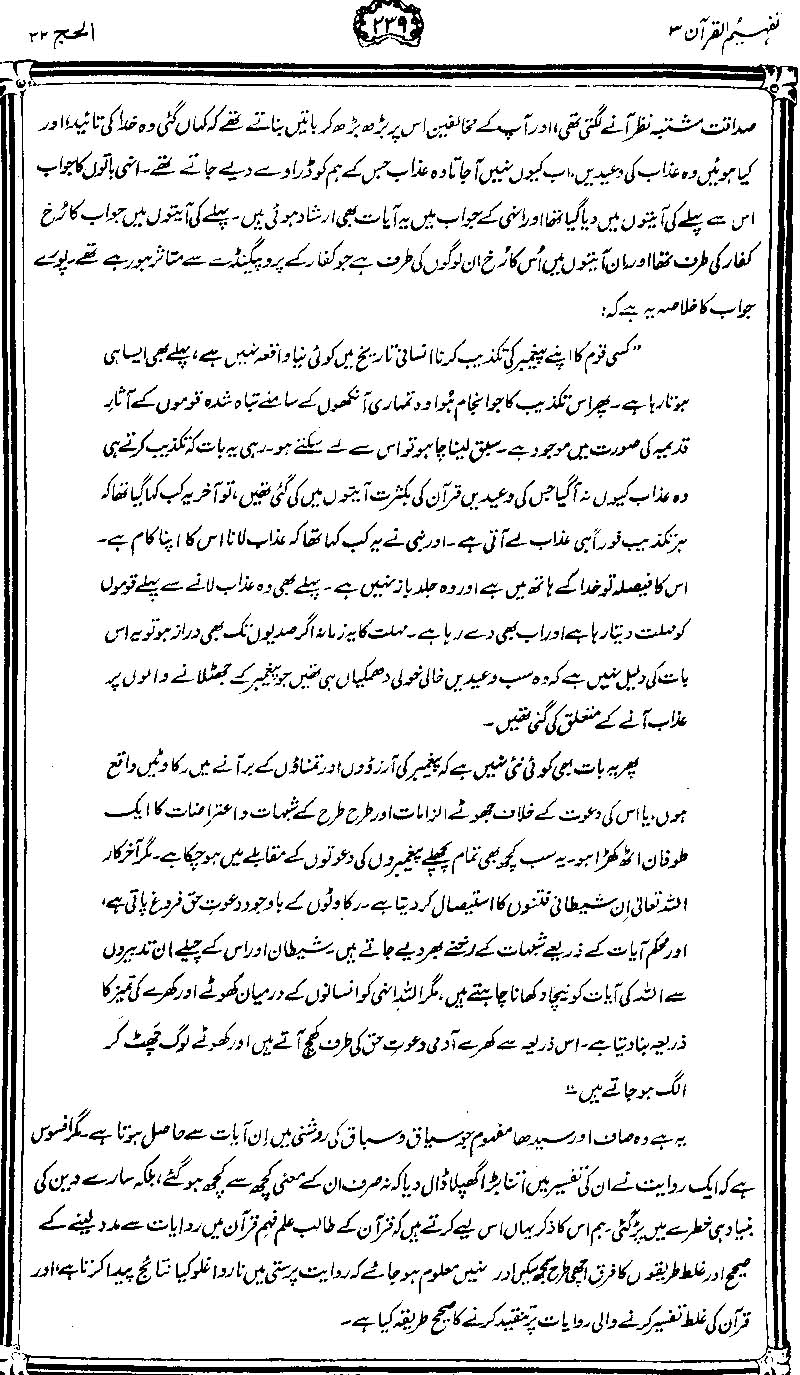 تفہیم القرآن ۳
۲۳۹
الحج ۲۲
صداقت مشتبہ نظر آنے لگتی تھی، اور آپ کے مخالفین اس پر بڑھ بڑھ کر باتیں بناتے تھے کہ کہاں گئی وہ خدا کی تائید، اور
کیا ہوئیں وہ عذاب کی وعیدیں، اب کیوں نہیں آجاتا وہ عذاب جس کے ہم کو ڈراوے دیے جاتے تھے۔ انہی باتوں کا جواب
اس سے پہلے کی آیتوں میں دیا گیا تھا اور انہی کے جواب میں یہ آیات بھی ارشاد ہوئی ہیں۔ پہلے کی آیتوں میں جواب کا رُخ
کفار کی طرف تھا اور ان آیتوں میں اُس کا رُخ ان لوگوں کی طرف ہے جو کفار کے پروپیگنڈے سے متاثر ہو رہے تھے۔ پورے
جواب کا خلاصہ یہ ہے کہ:
”کسی قوم کا اپنے پیغمبر کی تکذیب کرنا انسانی تاریخ میں کوئی نیا واقعہ نہیں ہے، پہلے بھی ایسا ہی
ہوتا رہا ہے۔ پھر اس تکذیب کا جو انجام ہُوا وہ تمہاری آنکھوں کے سامنے تباہ شدہ قوموں کے آثارِ
قدیمہ کی صورت میں موجود ہے۔ سبق لینا چاہو تو اس سے لے سکتے ہو۔ رہی یہ بات کہ تکذیب کرتے ہی
وہ عذاب کیوں نہ آگیا جس کی وعیدیں قرآن کی بکثرت آیتوں میں کی گئی تھیں، تو آخر یہ کب کہا گیا تھا کہ
ہر تکذیب فوراً ہی عذاب لے آتی ہے۔ اور نبی نے یہ کب کہا تھا کہ عذاب لانا اس کا اپنا کام ہے۔
اس کا فیصلہ تو خدا کے ہاتھ میں ہے اور وہ جلد باز نہیں ہے۔ پہلے بھی وہ عذاب لانے سے پہلے قوموں
کو مہلت دیتا رہا ہے اور اب بھی دے رہا ہے۔ مہلت کا یہ زمانہ اگر صدیوں تک بھی دراز ہو تو یہ اس
بات کی دلیل نہیں ہے کہ وہ سب وعیدیں خالی خولی دھمکیاں ہی تھیں جو پیغمبر کے جھٹلانے والوں پر
عذاب آنے کے متعلق کی گئی تھیں۔
پھر یہ بات بھی کوئی نئی نہیں ہے کہ پیغمبر کی آرزوؤں اور تمناؤں کے بر آنے میں رکاوٹیں واقع
ہوں، یا اس کی دعوت کے خلاف جھوٹے الزامات اور طرح طرح کے شبہات و اعتراضات کا ایک
طوفان اٹھ کھڑا ہو۔ یہ سب کچھ بھی تمام پچھلے پیغمبروں کی دعوتوں کے مقابلے میں ہو چکا ہے۔ مگر آخر کار
اللہ تعالیٰ اِن شیطانی فتنوں کا استیصال کر دیتا ہے۔ رکاوٹوں کے باوجود دعوتِ حق فروغ پاتی ہے،
اور محکم آیات کے ذریعے شبہات کے رخنے بھر دیے جاتے ہیں۔ شیطان اور اس کے چیلے ان تدبیروں
سے اللہ کی آیات کو نیچا دکھانا چاہتے ہیں، مگر اللہ انہی کو انسانوں کے درمیان کھوٹے اور کھرے کی تمیز کا
ذریعہ بنا دیتا ہے۔ اس ذریعہ سے کھرے آدمی دعوتِ حق کی طرف کھچ آتے ہیں اور کھوٹے لوگ چھٹ کر
الگ ہو جاتے ہیں۔“
یہ ہے وہ صاف اور سیدھا مفہوم جو سیاق و سباق کی روشنی میں اِن آیات سے حاصل ہوتا ہے۔ مگر افسوس
ہے کہ ایک روایت نے ان کی تفسیر میں اتنا بڑا گھپلا ڈال دیا کہ نہ صرف ان کے معنی کچھ سے کچھ ہو گئے، بلکہ سارے دین کی
بنیاد ہی خطرے میں پڑ گئی۔ ہم اس کا ذکر یہاں اس لیے کرتے ہیں کہ قرآن کے طالب علم فہمِ قرآن میں روایات سے مدد لینے کے
صحیح اور غلط طریقوں کا فرق اچھی طرح سمجھ سکیں اور انہیں معلوم ہو جائے کہ روایت پرستی میں ناروا غلو کیا نتائج پیدا کرتا ہے، اور
قرآن کی غلط تفسیر کرنے والی روایات پر تنقید کرنے کا صحیح طریقہ کیا ہے۔